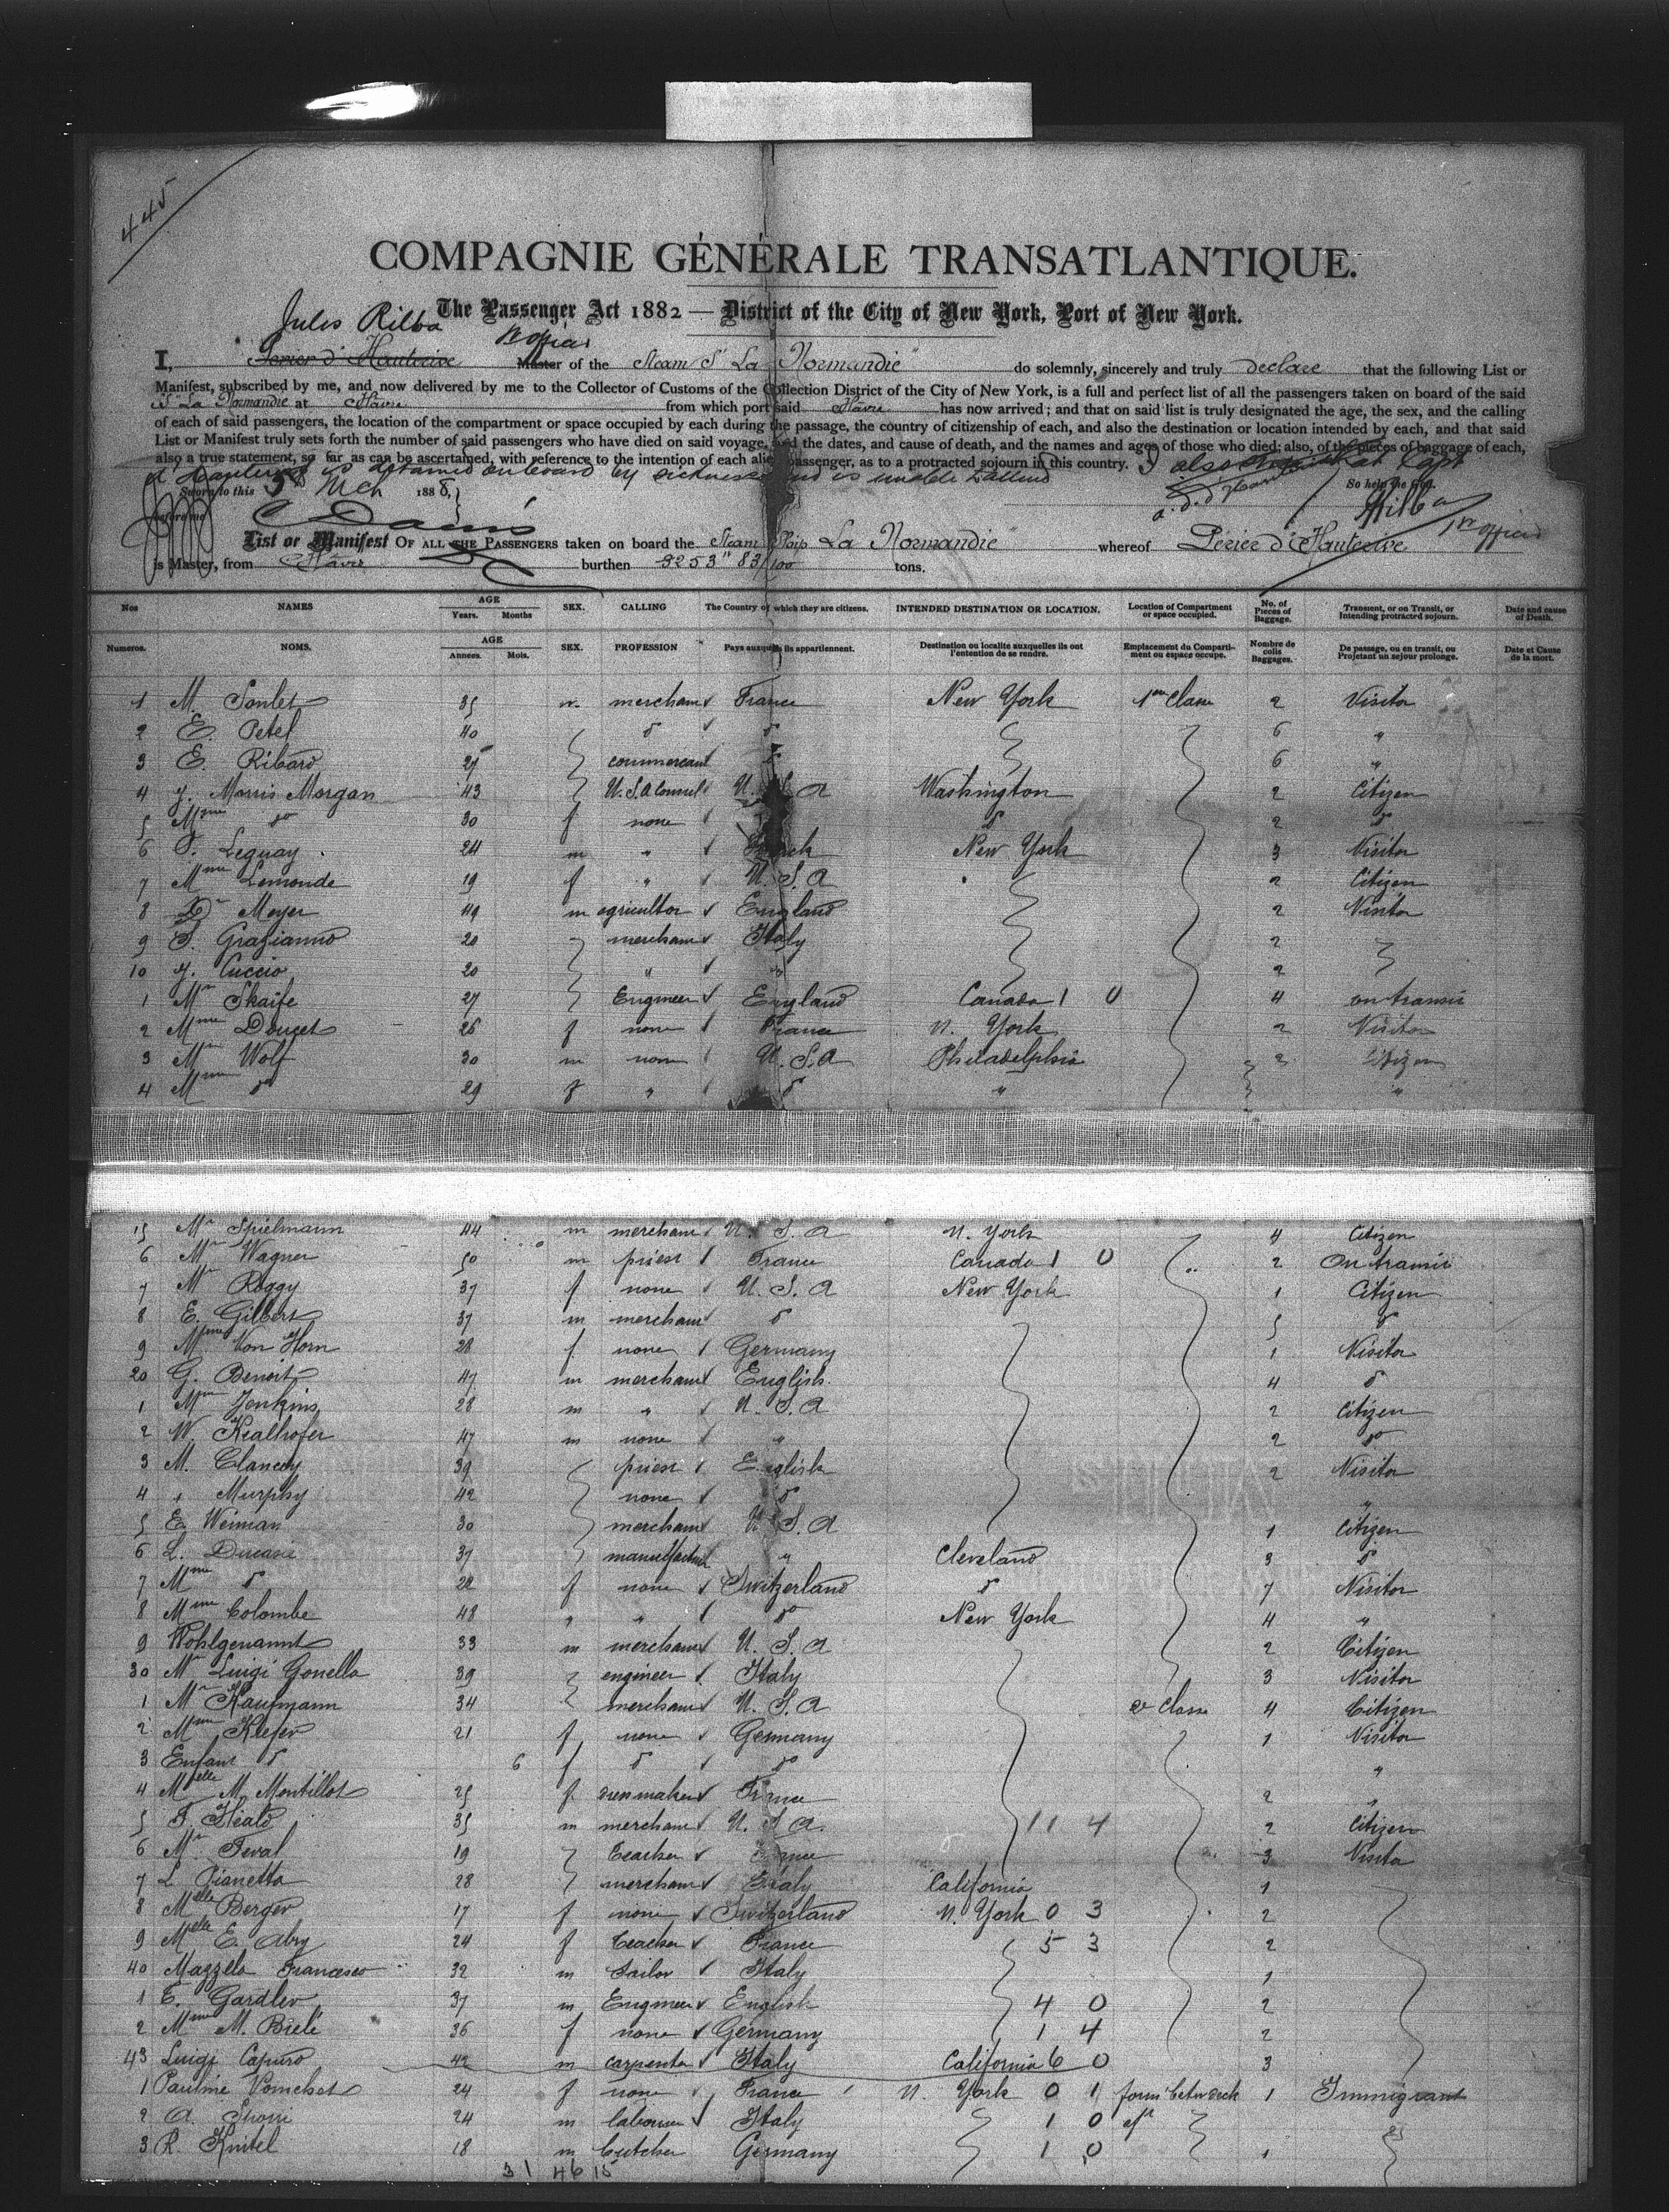 445
COMPAGNIE GÉNÉRALE TRANSATLANTIQUE.
The Passenger Act 1882 — District of the City of New York, Port of New York.
Jules Rilba
I, Perier d'Hauterive Master of the Steam S' La Normandie" do solemnly, sincerely and truly declare that the following List or
Manifest, subscribed by me, and now delivered by me to the Collector of Customs of the Collection District of the City of New York, is a full and perfect list of all the passengers taken on board of the said
S "La Normandie at Hâvre from which port said Hâvre has now arrived; and that on said list is truly designated the age, the sex, and the calling
of each of said passengers, the location of the compartment or space occupied by each during the passage, the country of citizenship of each, and also the destination or location intended by each, and that said
List or Manifest truly sets forth the number of said passengers who have died on said voyage, and the dates, and cause of death, and the names and ages of those who died; also, of the pieces of baggage of each,
also a true statement, so far as can be ascertained, with reference to the intention of each alien passenger, as to a protracted sojourn in this country. I also that Capt
d'Hauterive is detained on board by sickness and is unable to attend
Sworn to this 5th Mch 1888 So help me God.
before me Rilba
List or Manifest OF ALL THE PASSENGERS taken on board the Steam Ship La Normandie" whereof Perier d'Hauterive 1er officer
is Master, from Hâvre burthen 3253" 83/100 tons.
Nos NAMES AGE Years. Months SEX. CALLING The Country of which they are citizens. INTENDED DESTINATION OR LOCATION. Location of Compartment or space occupied. No. of Pieces of Baggage. Transient, or on Transit, or Intending protracted sojourn. Date and cause of Death.
Numeros. NOMS. AGE Années. Mois. SEX. PROFESSION Pays auxquels ils appartiennent. Destination ou localite auxquelles ils ont l'intention de se rendre. Emplacement du Compartiment ou espace occupe. Nombre de colis Baggages. De passage, ou en transit, ou Projetant un sejour prolonge. Date et Cause de la mort.
1 M. Sonlet 35 m. merchant France New York 1ere Classe 2 Visitor
2 E. Petel 40 do do 6 "
3 E. Ribard 25 commercant do 6 "
4 J. Morris Morgan 43 U.S.A Consul U.S.A Washington 2 Citizen
5 Mme do 30 f none do do 2 do
6 P. Lequay 24 m " French New York 3 Visitor
7 Mme Lemonde 19 f " U.S.A 2 Citizen
8 Dr Meyer 49 m agricultor England 2 Visitor
9 S. Grafianno 20 merchant Italy 2
10 J. Cuccio 20 " " 2
1 Mr Skaife 27 Engineer England Canada 1 0 4 on transit
2 Mme Doucet 26 f none France N. York 2 Visitor
3 Mr Wolf 30 m none U.S.A Philadelphia 2 Citizen
4 Mme do 29 f " do " "
15 Mr Spielmann 44 m merchant U.S.A N. York 4 Citizen
6 Mr Wagner 50 m priest France Canada 1 0 " 2 On transit
7 Mme Roggy 37 f none U.S.A New York 1 Citizen
8 E. Gilbert 37 m merchant do 5 do
9 Mme Von Horn 28 f none Germany 1 Visitor
20 G. Benoit 47 m merchant English 4 do
1 Mr Jenkins 28 m " U.S.A 2 Citizen
2 W. Kealhofer 47 m none " 2 do
3 M. Clancey 39 priest English 2 Visitor
4 " Murphy 42 none do "
5 E. Weiman 30 merchant U.S.A 1 Citizen
6 L. Ducasie 37 manufacturer " Cleveland 3 do
7 Mme do 22 f none Switzerland do 7 Visitor
8 Mme Colombe 48 " " do New York 4 "
9 Wohlgenannt 33 m merchant U.S.A 2 Citizen
30 Mr Luigi Gonella 39 engineer Italy 3 Visitor
1 Mr Kaufmann 34 merchant U.S.A 2e Classe 4 Citizen
2 Mme Kiefer 21 f none Germany 1 Visitor
3 Enfant do 6 f do do "
4 Melle M. Montillot 25 f dressmaker France 2 "
5 F. Heald 35 m merchant U.S.A. 11 4 2 Citizen
6 Mr Feval 19 teacher France 3 Visitor
7 L. Pianetta 28 merchant Italy California 1
8 Melle Berger 17 f none Switzerland N. York 0 3 2
9 Melle E. Abry 24 f teacher France 5 3 2
40 Mazzela Francesco 32 m Sailor Italy 1
1 E. Gardler 37 m Engineer English 4 0 2
2 Mme M. Bielé 36 f none Germany 1 4 2
43 Luigi Capuro 42 m carpenter Italy California 6 0 3
1 Pauline Vomchet 24 f none France N. York 0 1 betw deck 1 Immigrant
2 A. Shori 24 m labourer Italy 1 0
3 R. Knitel 18 m butcher Germany 1 0 1
31 46 15